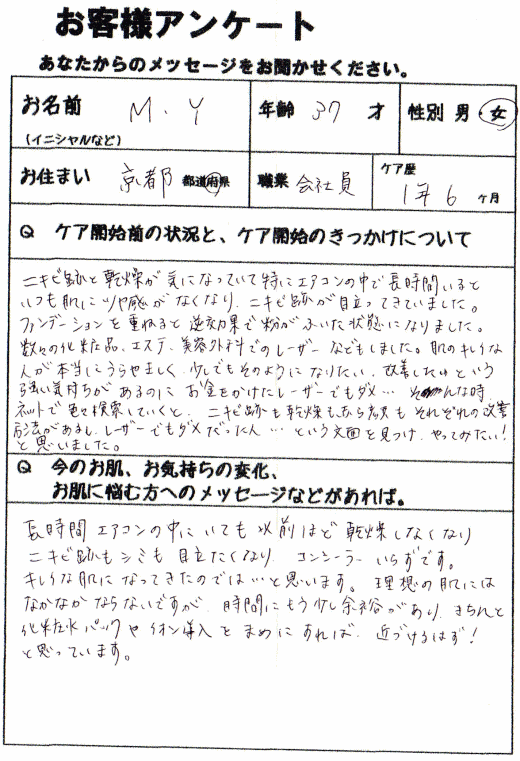 お客様アンケート
あなたからのメッセージをお聞かせください。
お名前 M.Y 年齢 37 才 性別 男・女
(イニシャルなど)
お住まい 京都 都道府県 職業 会社員 ケア歴 1年6ヶ月
Q ケア開始前の状況と、ケア開始のきっかけについて
ニキビ跡と乾燥が気になっていて特にエアコンの中で長時間いると
いつも肌にツヤ感がなくなり、ニキビ跡が目立ってきていました。
ファンデーションを重ねると逆効果で粉がふいた状態になりました。
数々の化粧品、エステ、美容外科でのレーザーなどもしました。肌のキレイな
人が本当にうらやましく、少しでもそのようになりたい、改善したいという
強い気持ちがあるのにお金をかけたレーザーでもダメ… そんな時、
ネットで色々検索していくと、ニキビ跡も乾燥もあら
もそれぞれの改善
方法があるし、レーザーでもダメだった人…という文面を見つけ、やってみたい!
と思いました。
Q 今のお肌、お気持ちの変化、
お肌に悩む方へのメッセージなどがあれば。
長時間エアコンの中にいても以前ほど乾燥しなくなり
ニキビ跡もシミも目立たなくなり、コンシーラーいらずです。
キレイな肌になってきたのでは…と思います。理想の肌には
なかなかならないですが、時間にもう少し余裕があり、きちんと
化粧水パックやイオン導入をまめにすれば、近づけるはず!
と思っています。